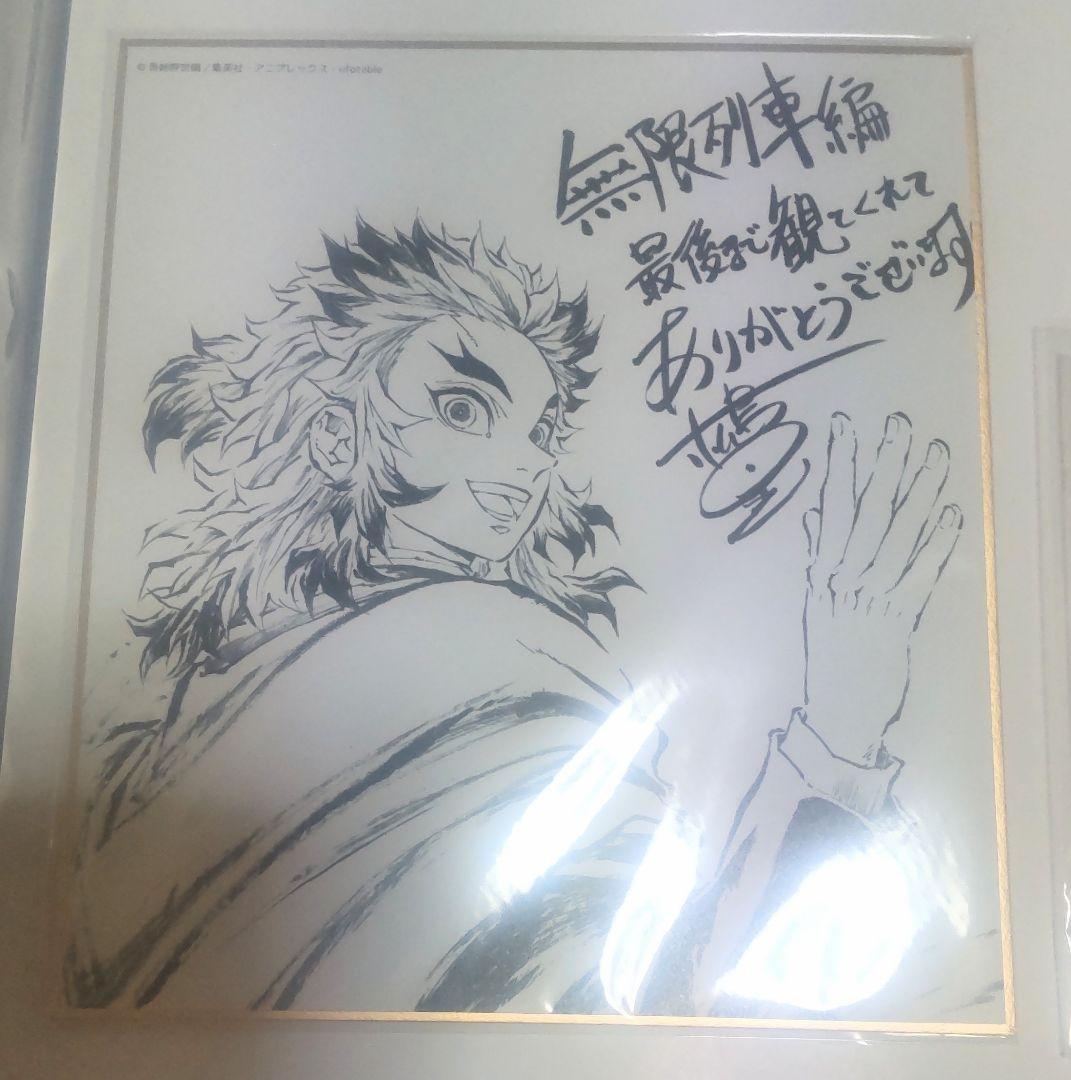 © 吾峠呼世晴／集英社・アニプレックス・ufotable
無限列車編
最後まで観てくれて
ありがとうございます
松島